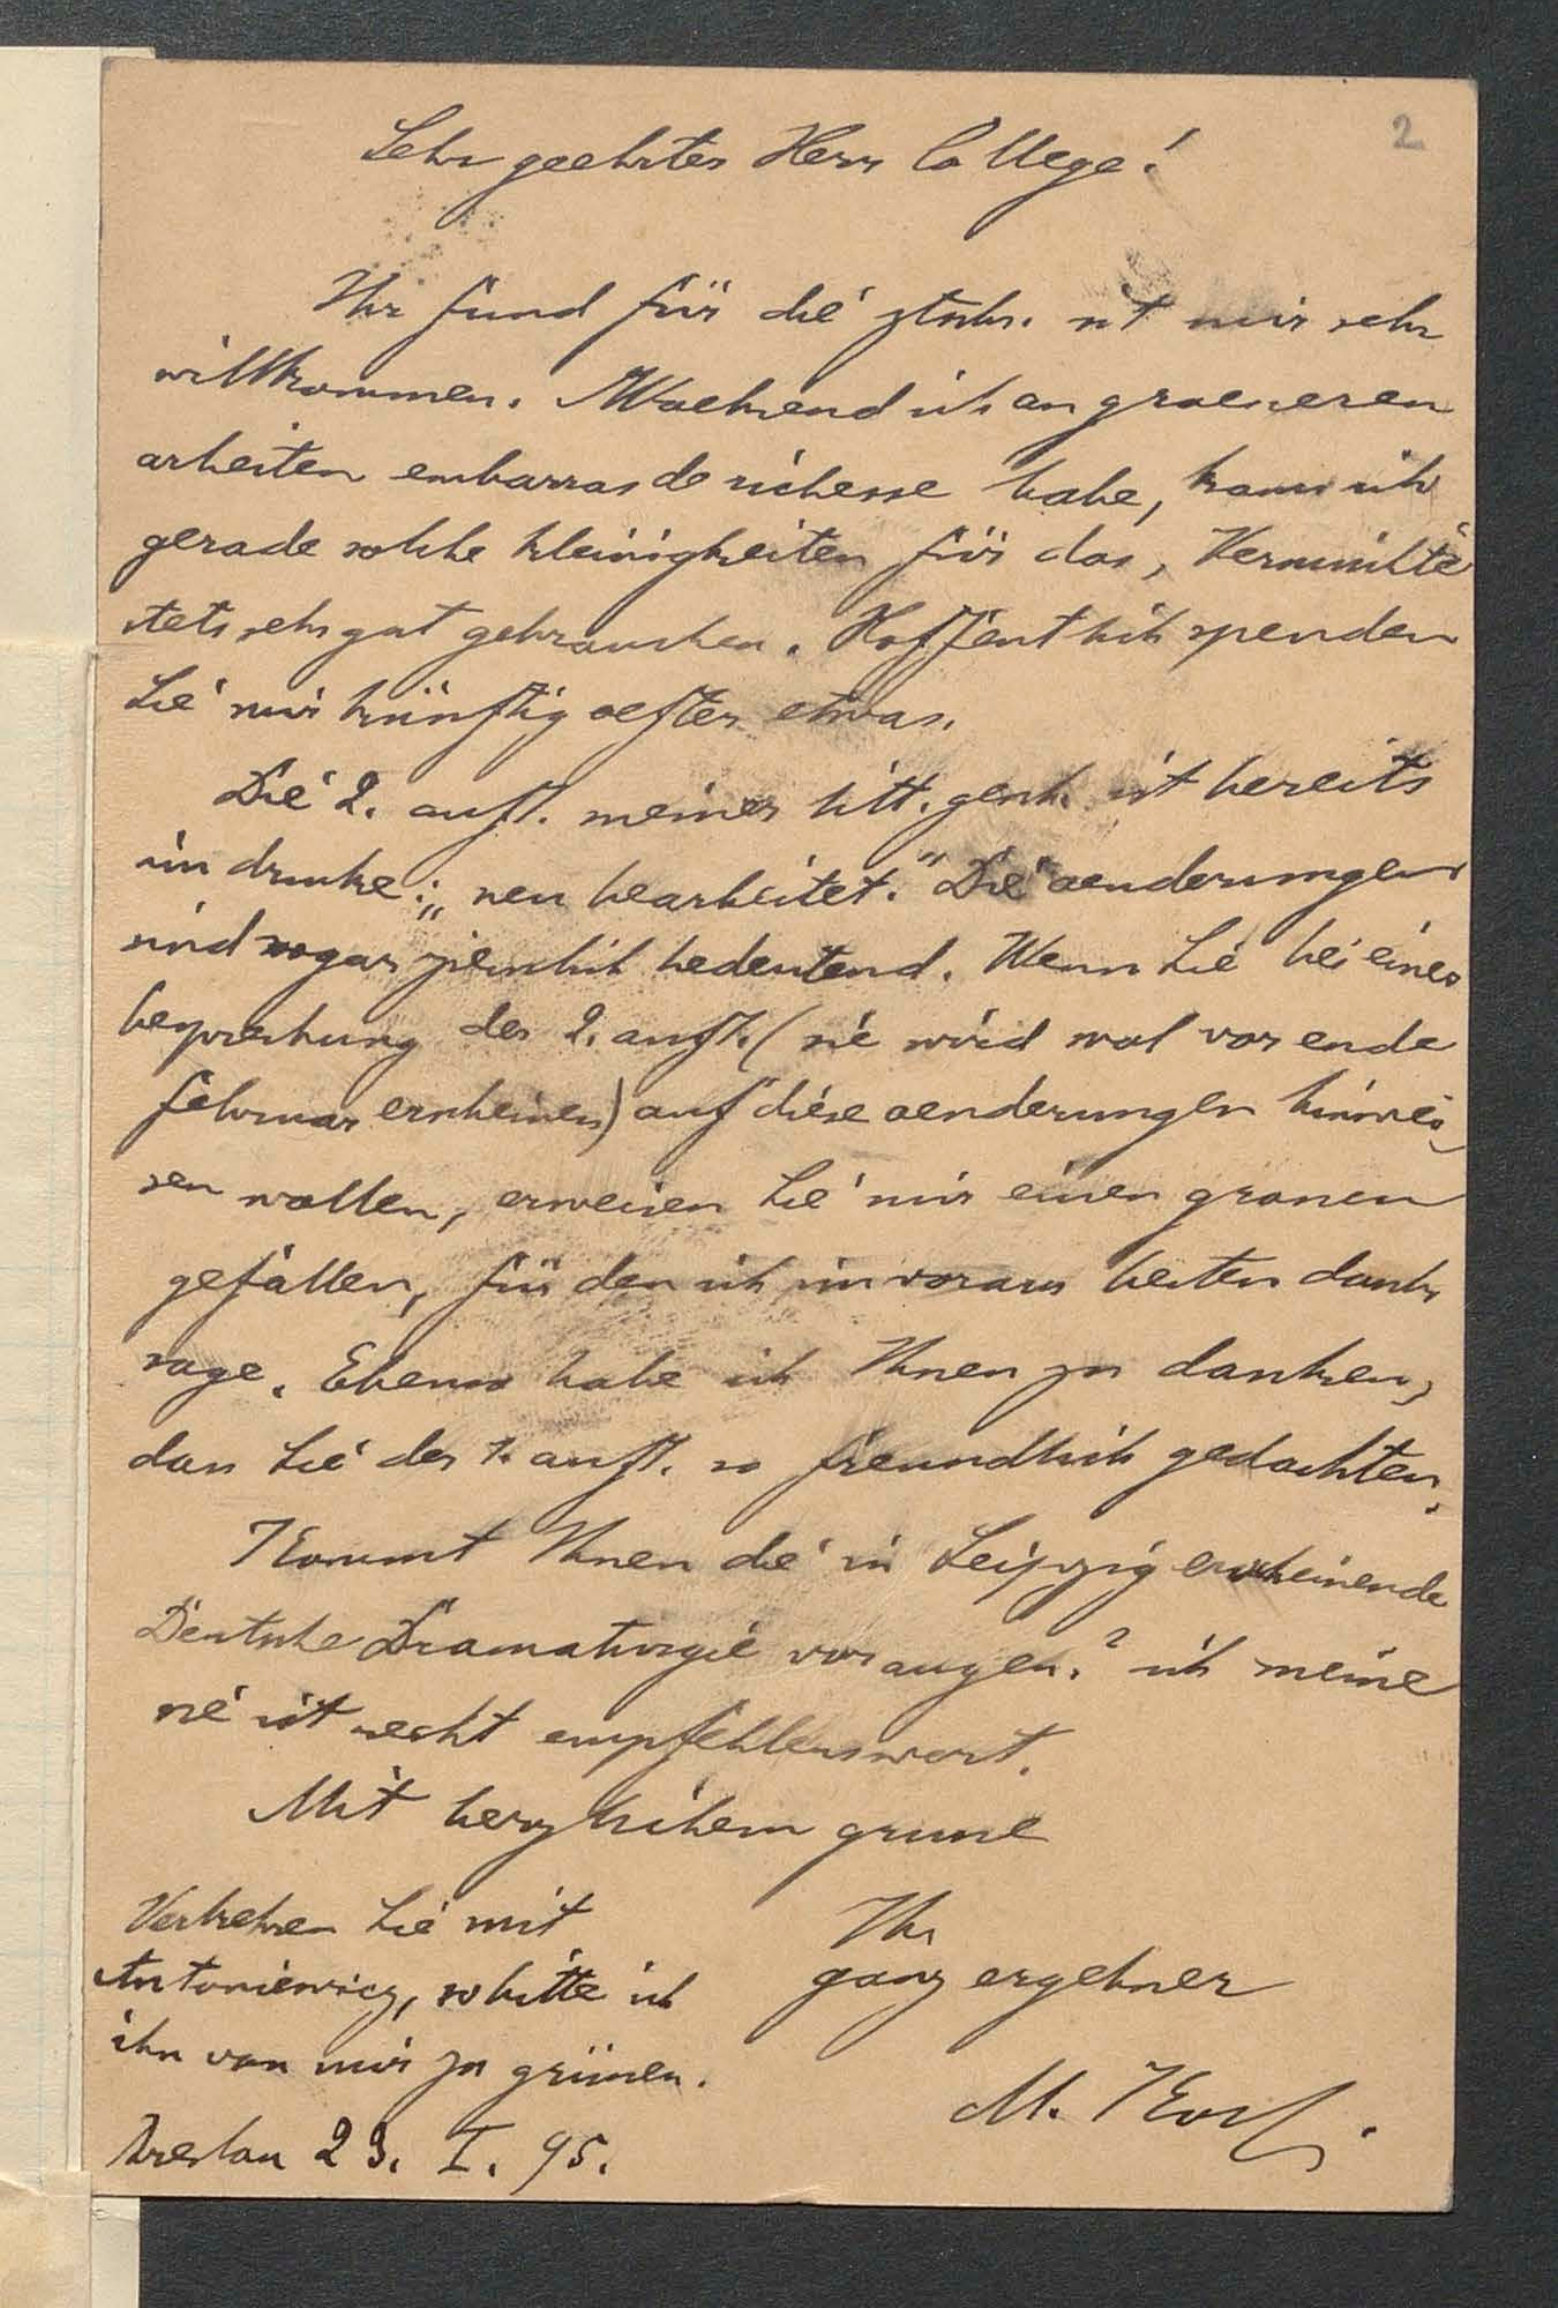 2
Sehr geehrter Herr College!
Ihr fund für die ztschr. ist mir sehr
willkommen. Waehrend ich an groesseren
arbeiten embarras de richesse habe, kann ich
gerade solche kleinigkeiten für das „Vermischte“
stets sehr gut gebrauchen. Hoffentlich spenden
Sie mir künftig oefter etwas.
Die 2. aufl. meiner litt. gesch. ist bereits
im drucke: „neu bearbeitet.“ Die aenderungen
sind sogar ziemlich bedeutend. Wenn Sie bei einer
besprechung der 2. aufl. (sie wird wol vor ende
februar erscheinen) auf diese aenderungen hinwei-
sen wollen, erweisen Sie mir einen grossen
gefallen, für den ich im voraus besten dank
sage. Ebenso habe ich Ihnen zu danken,
dass Sie der 1. aufl. so freundlich gedachten.
Kommt Ihnen die in Leipzig erscheinende
Deutsche Dramaturgie vor augen? ich meine
sie ist recht empfehlenswert.
Mit herzlichem grusse
Ihr
ganz ergebner
M. Koch.
Verkehren Sie mit
Antoniewicz, so bitte ich
ihn von mir zu grüssen.
Breslau 23. I. 95.